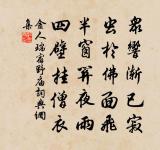 眾響漸已寂
虫於佛面飛
半窗關夜雨
四壁挂僧衣
金人瑞宿野廟詞典網
集